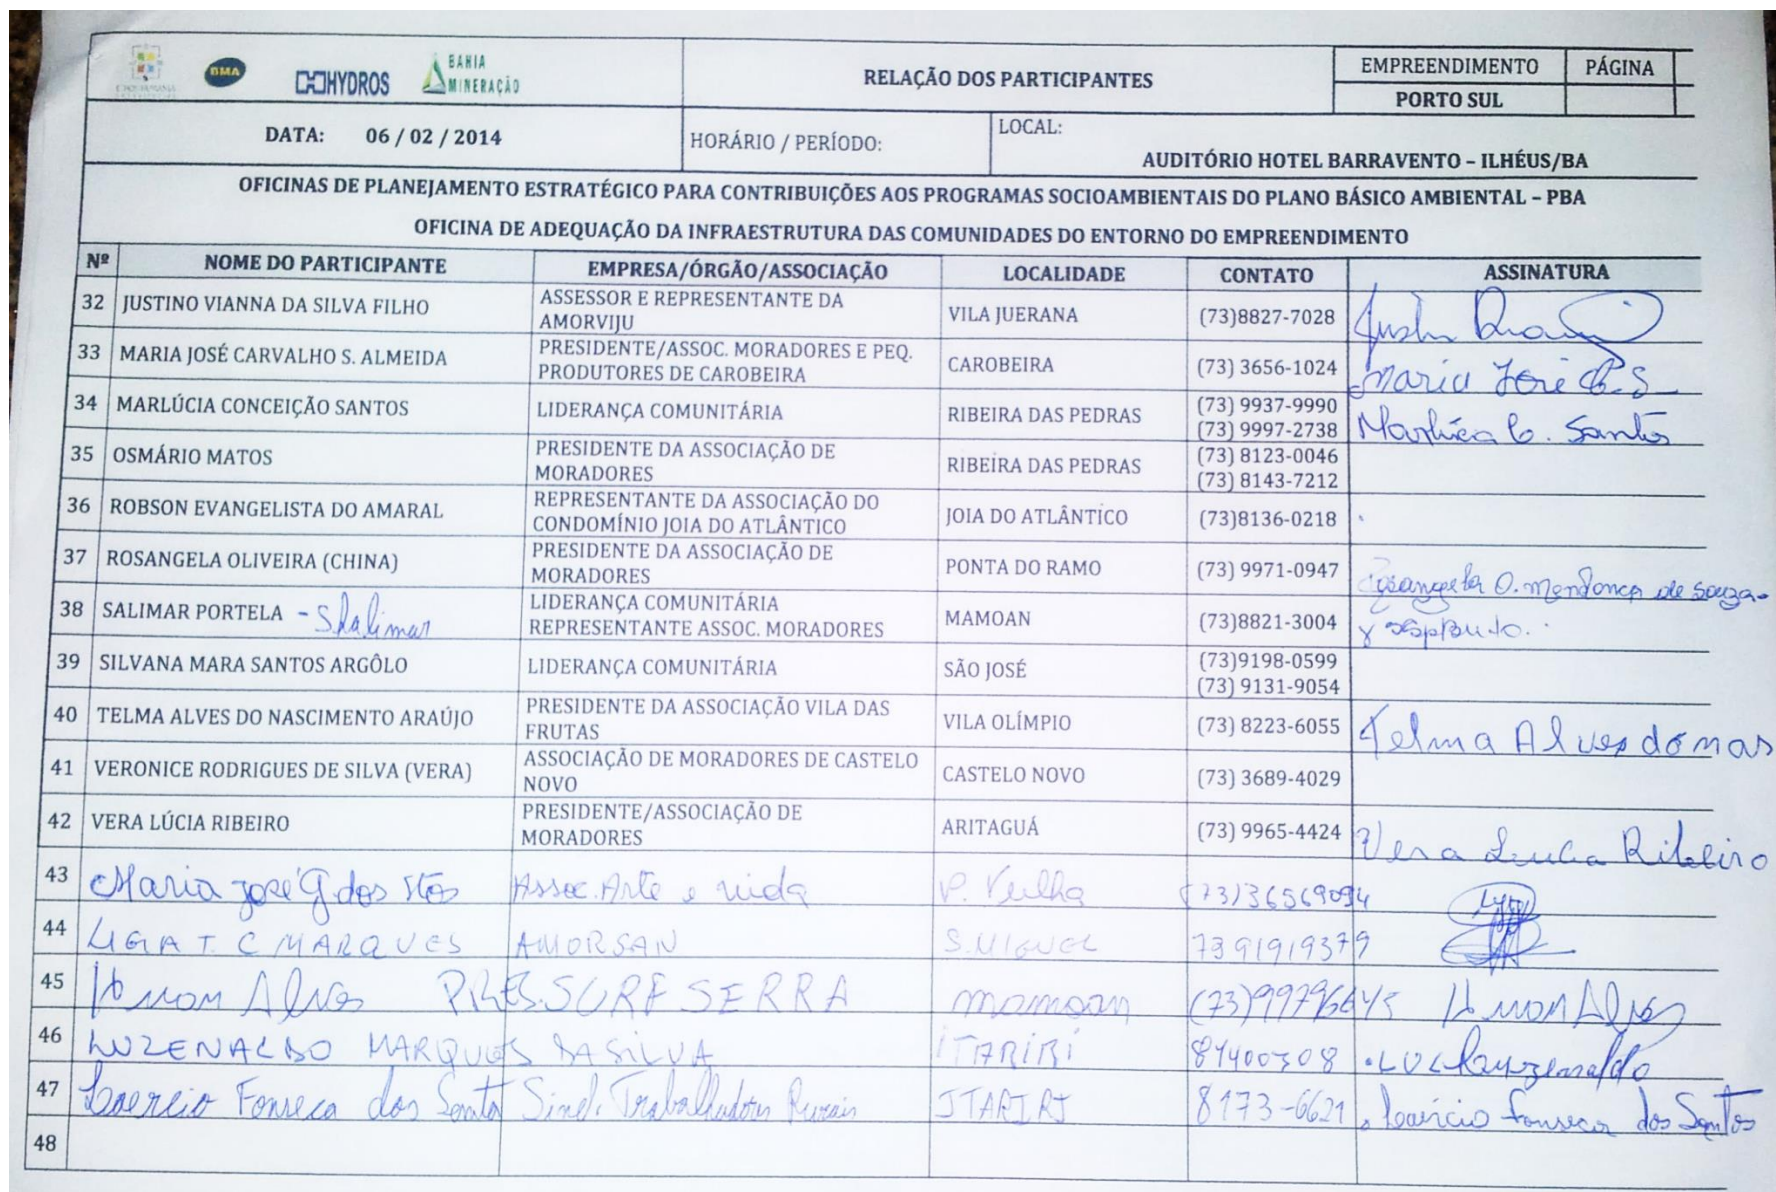 BMA
HYDROS
BAHIA
MINERAÇÃO
RELAÇÃO DOS PARTICIPANTES
EMPREENDIMENTO PÁGINA
PORTO SUL
DATA: 06 / 02 / 2014 HORÁRIO / PERÍODO: LOCAL:
AUDITÓRIO HOTEL BARRAVENTO – ILHÉUS/BA
OFICINAS DE PLANEJAMENTO ESTRATÉGICO PARA CONTRIBUIÇÕES AOS PROGRAMAS SOCIOAMBIENTAIS DO PLANO BÁSICO AMBIENTAL – PBA
OFICINA DE ADEQUAÇÃO DA INFRAESTRUTURA DAS COMUNIDADES DO ENTORNO DO EMPREENDIMENTO
Nº NOME DO PARTICIPANTE EMPRESA/ÓRGÃO/ASSOCIAÇÃO LOCALIDADE CONTATO ASSINATURA
32 JUSTINO VIANNA DA SILVA FILHO ASSESSOR E REPRESENTANTE DA
AMORVIJU VILA JUERANA (73)8827-7028
33 MARIA JOSÉ CARVALHO S. ALMEIDA PRESIDENTE/ASSOC. MORADORES E PEQ.
PRODUTORES DE CAROBEIRA CAROBEIRA (73) 3656-1024 Maria José C.S
34 MARLÚCIA CONCEIÇÃO SANTOS LIDERANÇA COMUNITÁRIA RIBEIRA DAS PEDRAS (73) 9937-9990
(73) 9997-2738 Marlúcia C. Santos
35 OSMÁRIO MATOS PRESIDENTE DA ASSOCIAÇÃO DE
MORADORES RIBEIRA DAS PEDRAS (73) 8123-0046
(73) 8143-7212
36 ROBSON EVANGELISTA DO AMARAL REPRESENTANTE DA ASSOCIAÇÃO DO
CONDOMÍNIO JOIA DO ATLÂNTICO JOIA DO ATLÂNTICO (73)8136-0218
37 ROSANGELA OLIVEIRA (CHINA) PRESIDENTE DA ASSOCIAÇÃO DE
MORADORES PONTA DO RAMO (73) 9971-0947 Rosangela O. Mendonça de Souza
38 SALIMAR PORTELA - Shalimar LIDERANÇA COMUNITÁRIA
REPRESENTANTE ASSOC. MORADORES MAMOAN (73)8821-3004
39 SILVANA MARA SANTOS ARGÔLO LIDERANÇA COMUNITÁRIA SÃO JOSÉ (73)9198-0599
(73) 9131-9054
40 TELMA ALVES DO NASCIMENTO ARAÚJO PRESIDENTE DA ASSOCIAÇÃO VILA DAS
FRUTAS VILA OLÍMPIO (73) 8223-6055 Telma Alves do nas
41 VERONICE RODRIGUES DE SILVA (VERA) ASSOCIAÇÃO DE MORADORES DE CASTELO
NOVO CASTELO NOVO (73) 3689-4029
42 VERA LÚCIA RIBEIRO PRESIDENTE/ASSOCIAÇÃO DE
MORADORES ARITAGUÁ (73) 9965-4424 Vera Lucia Ribeiro
43 Maria José G dos Stos Assoc. Arte e vida (73)36569094
44 LIGIA T. C MARQUES AMORSAN S. MIGUEL 7391919379
45 Alves PRES. SURF SERRA mamoan Alves
46 LUZENALDO MARQUES DA SILVA ITARIRI 81400308 Luzenaldo
47 Laercio Fonseca dos Santos Sind. Trabalhadores Rurais ITARIRI 8173-6621 Laercio Fonseca dos Santos
48